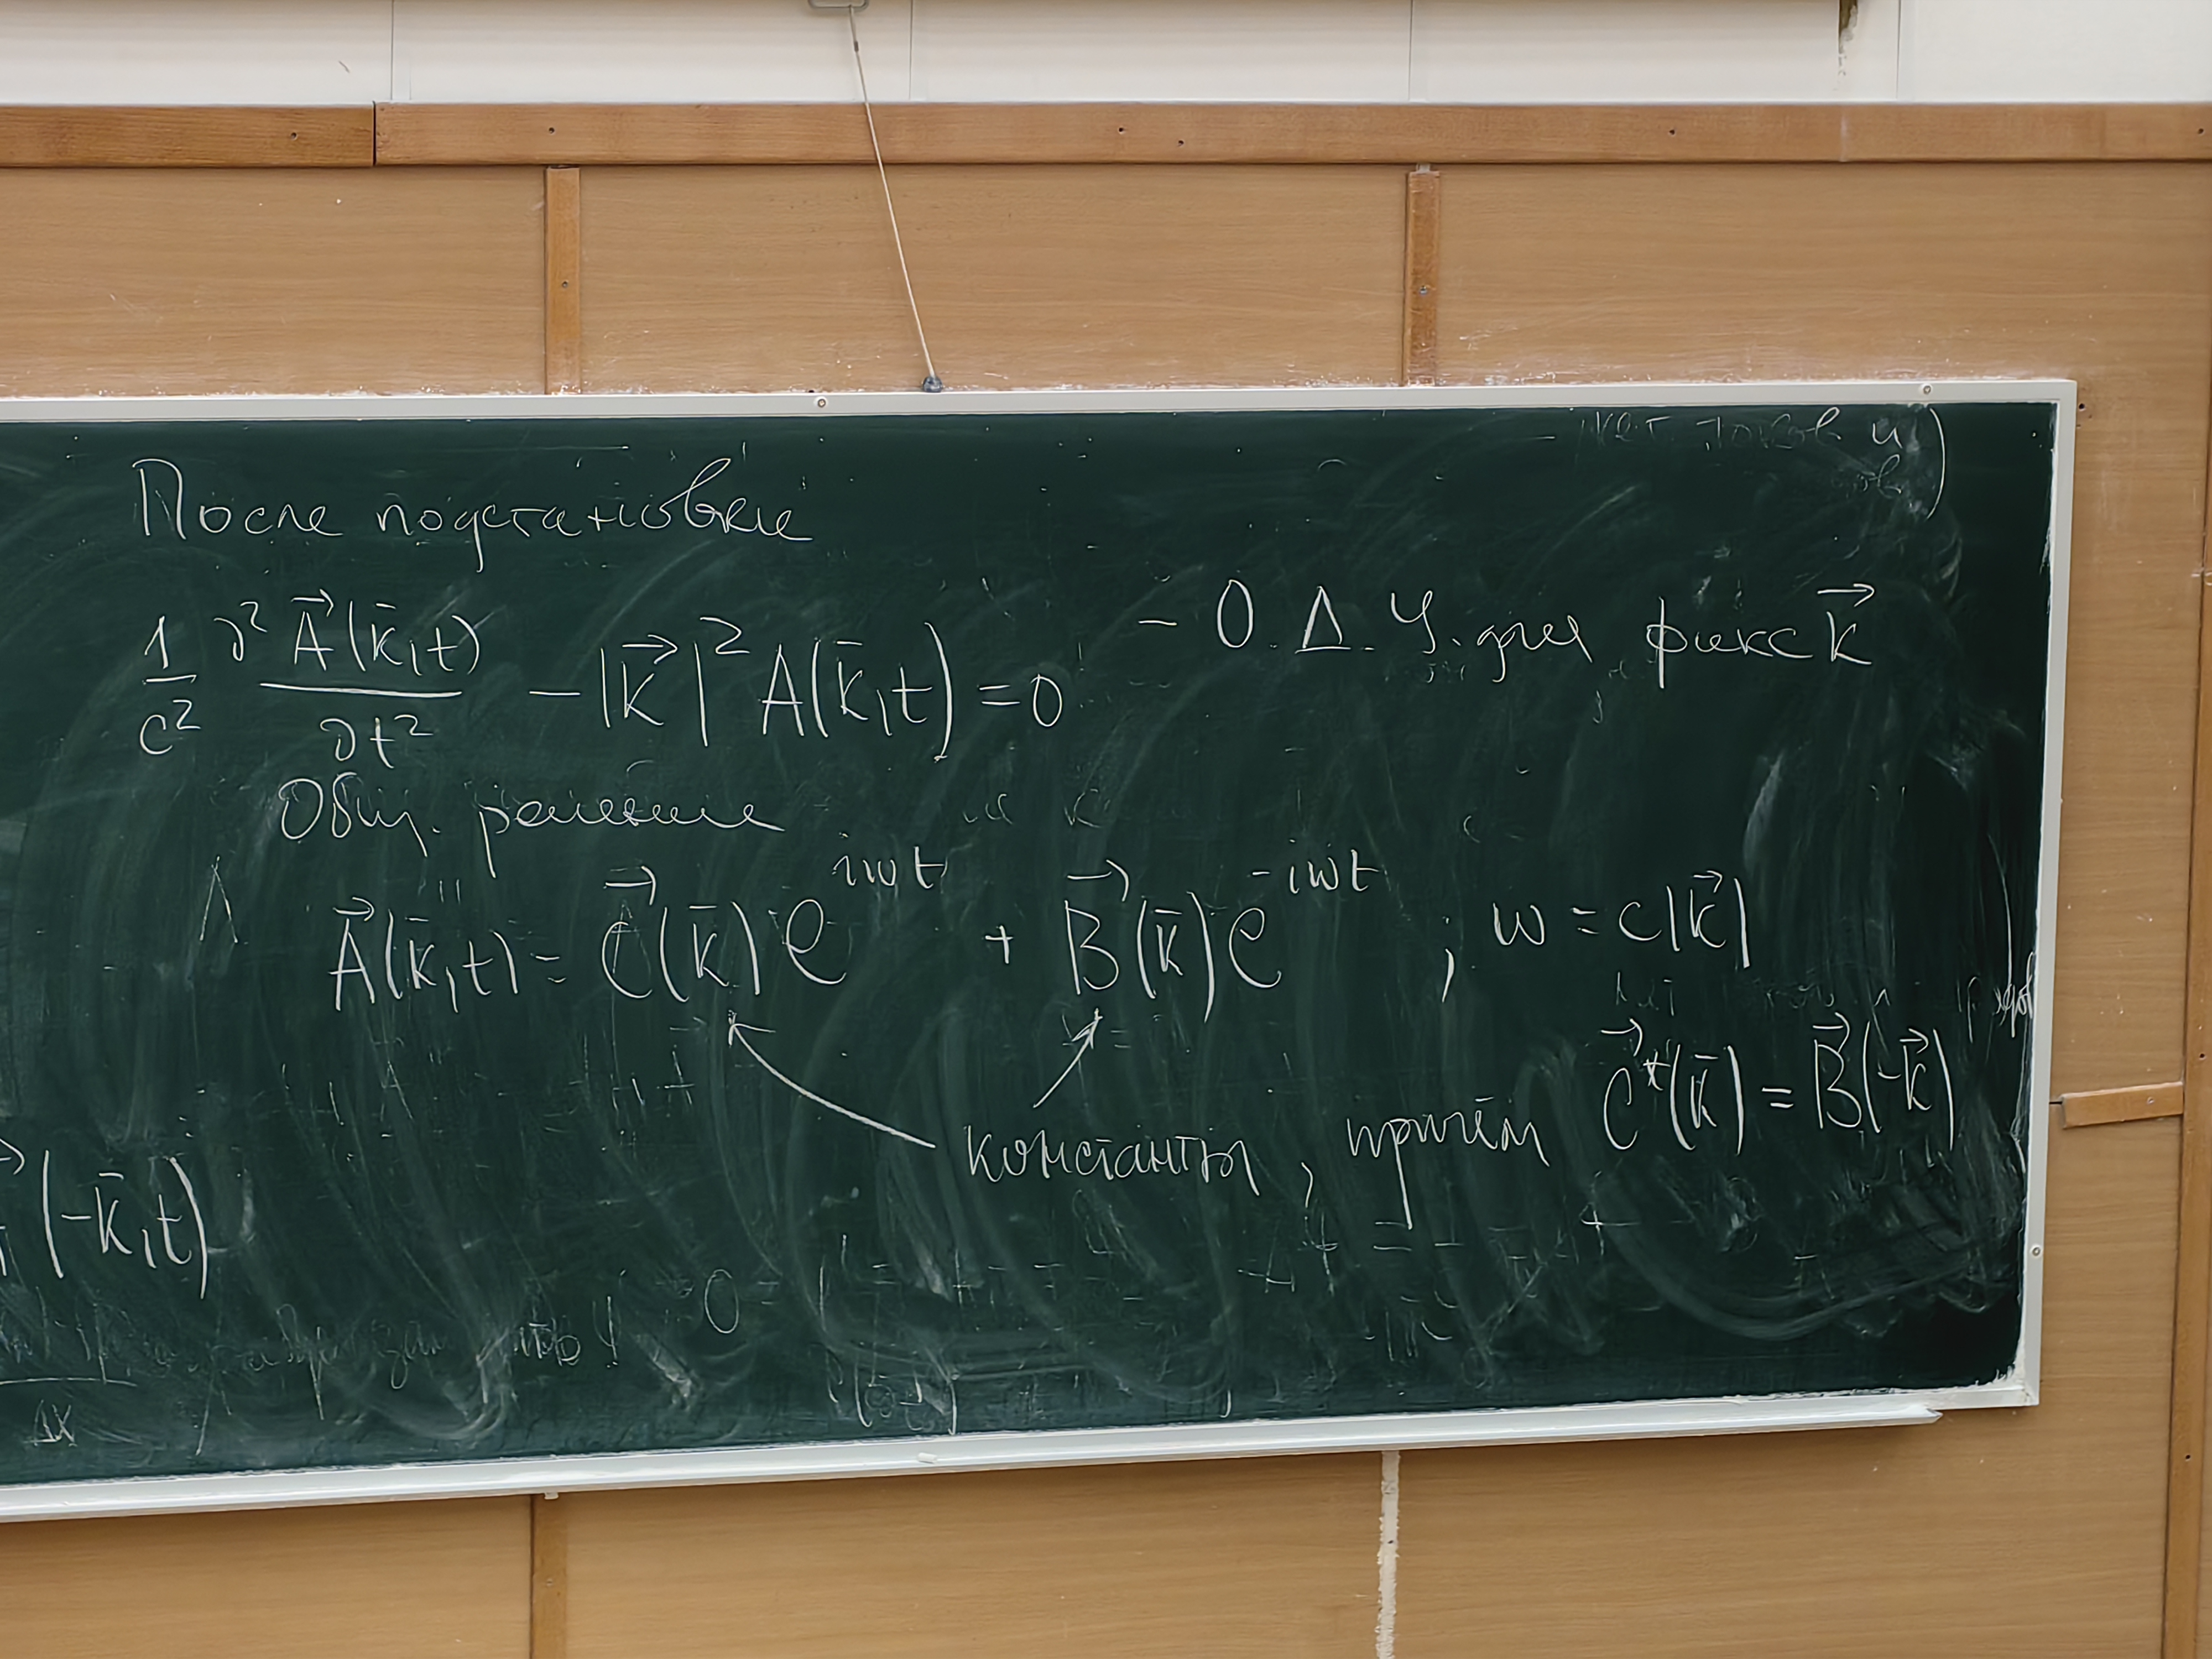 После подстановки
1/c² ∂²A⃗(k̄,t)/∂t² − |k⃗|² A(k̄,t) = 0 - О.Д.У. для фикс k⃗
Общ. решение
A⃗(k̄,t) = C⃗(k̄)e^{iωt} + B⃗(k̄)e^{-iωt} ; ω = c|k⃗|
константы, причём C⃗*(k̄) = B⃗(-k⃗)
(-k̄,t)
Δx